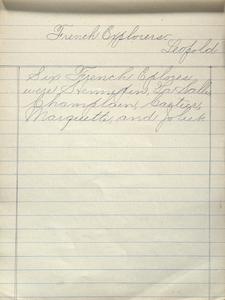 French Explorers
Leopold
Six French Eplores
were Hennepin, La Salle
Champlain, Cartier,
Marquette and Joliet